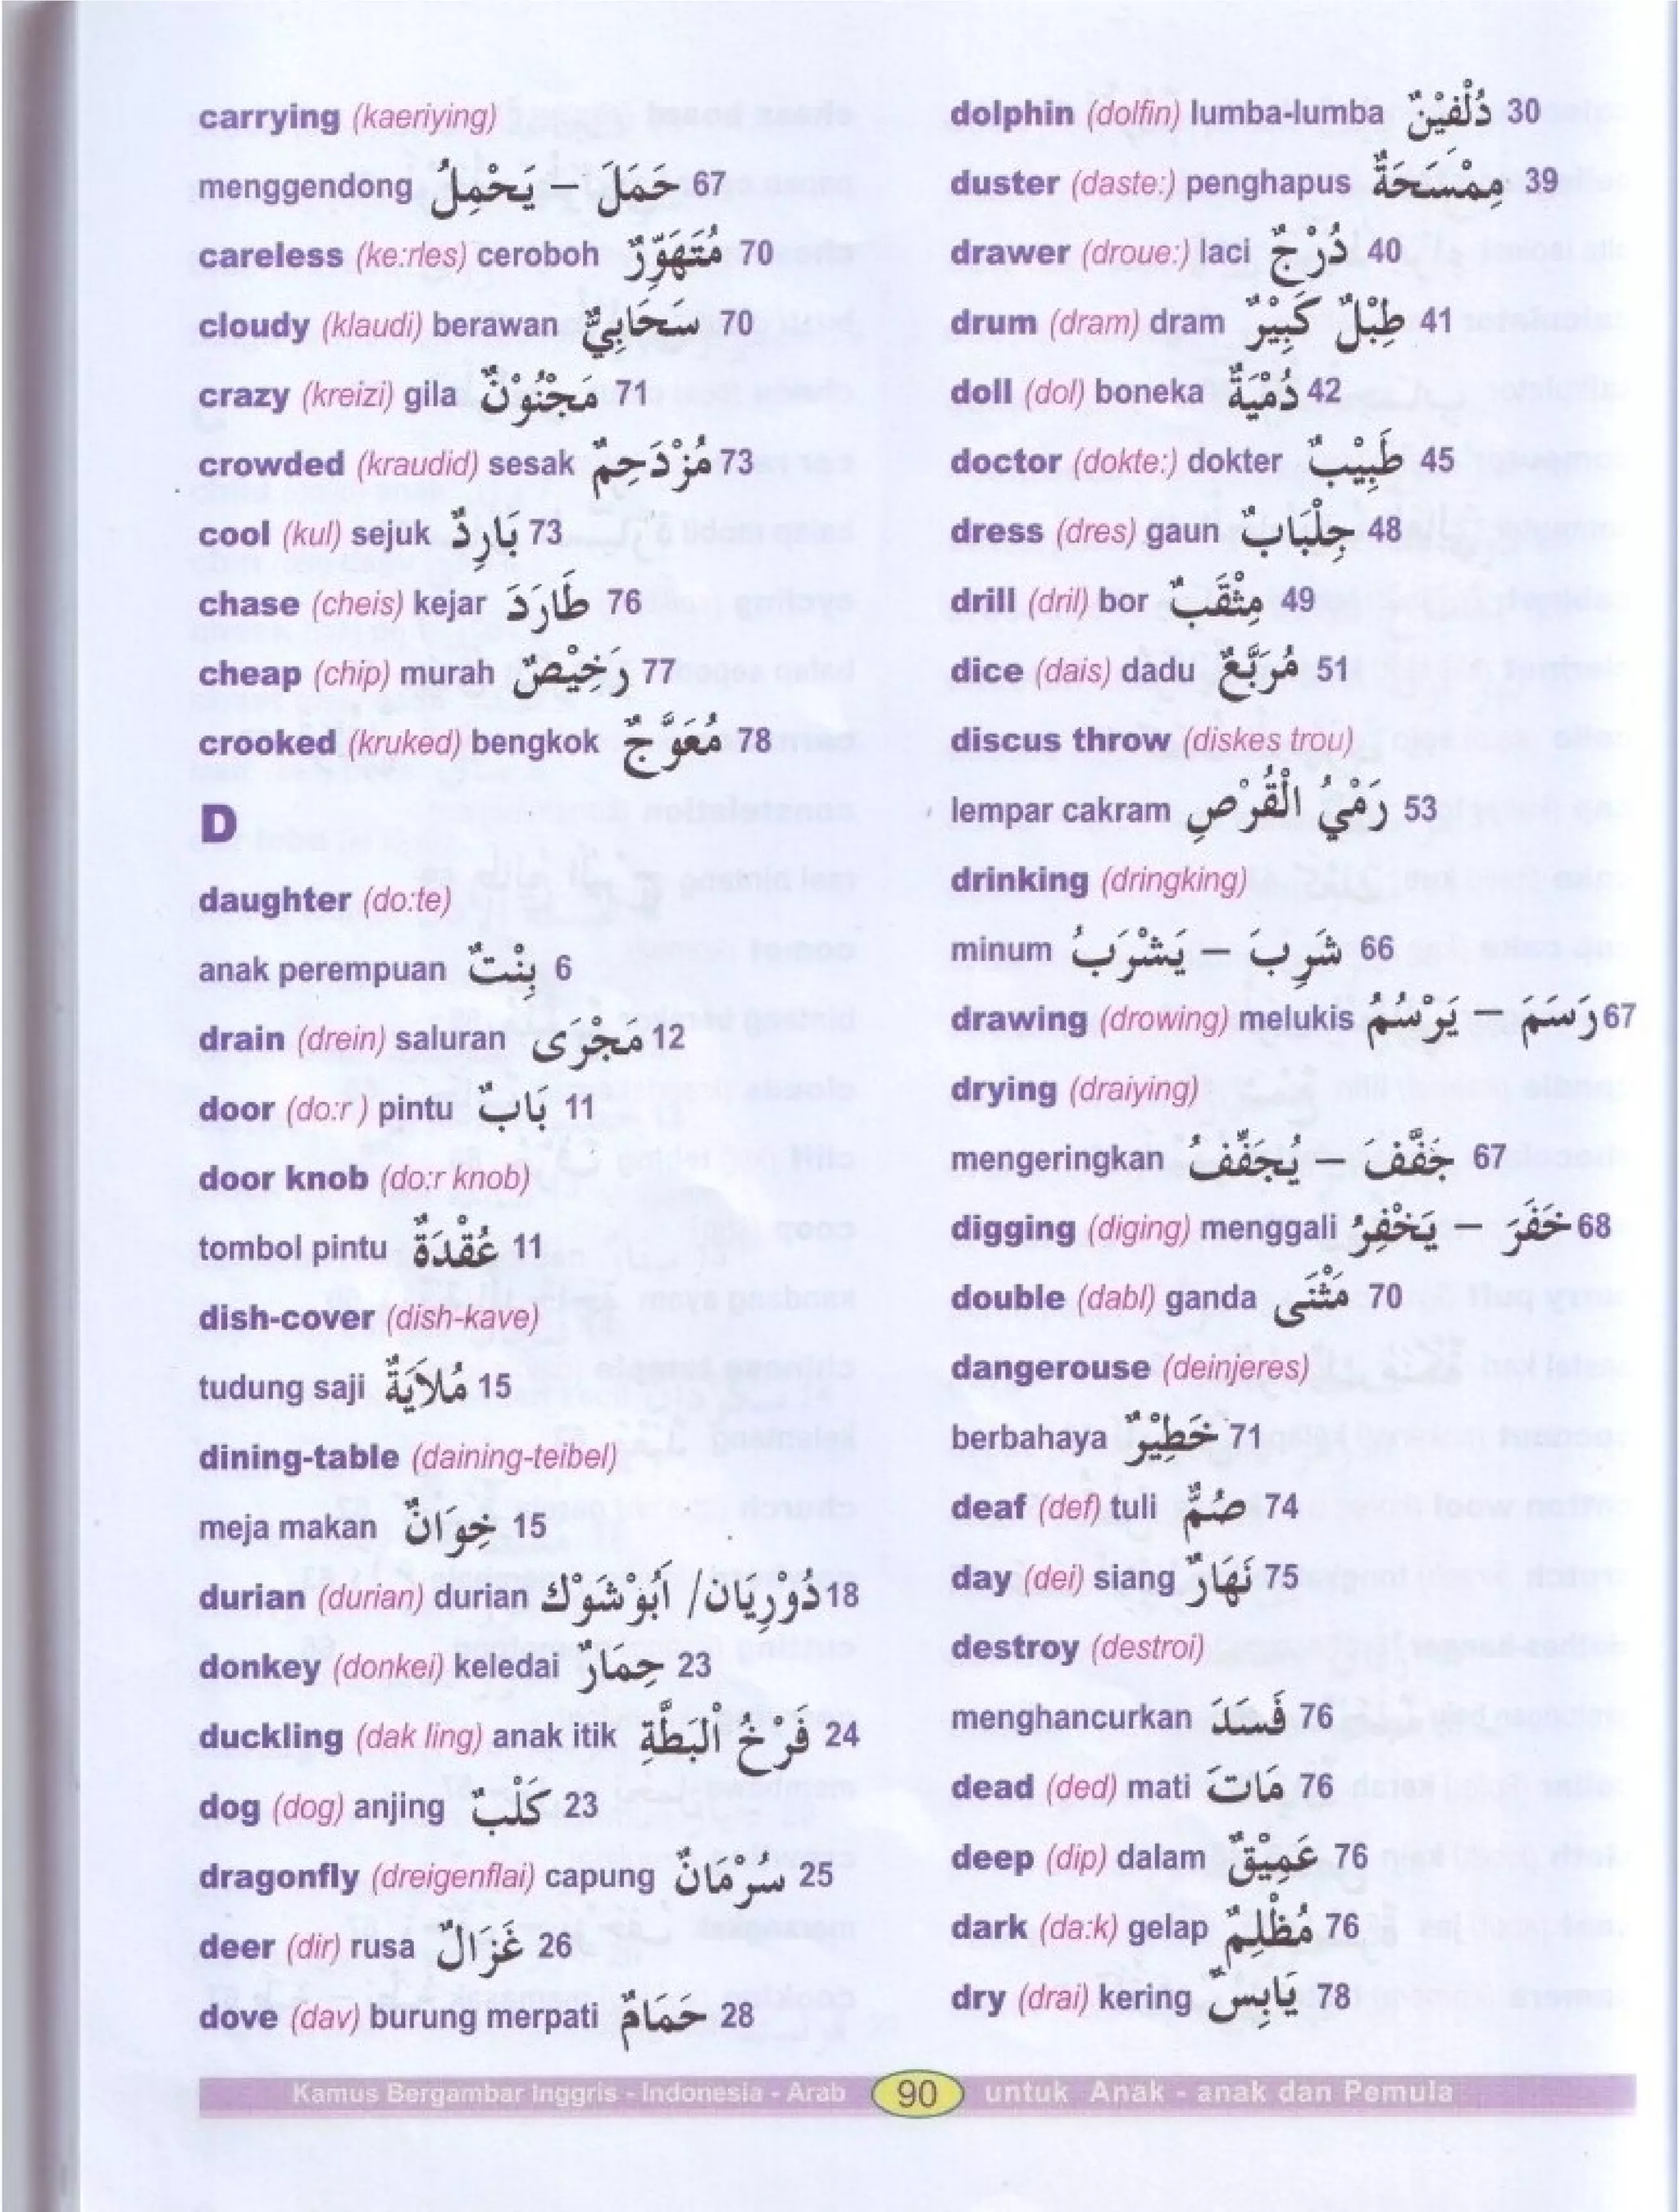 carrying (kaeriying)
menggendong حَمَلَ – يَحْمِلُ 67
careless (ke:rles) ceroboh مُتَهَوِّرٌ 70
cloudy (klaudi) berawan سَحَابِيٌّ 70
crazy (kreizi) gila مَجْنُوْنٌ 71
crowded (kraudid) sesak مُزْدَحِمٌ 73
cool (kul) sejuk بَارِدٌ 73
chase (cheis) kejar طَارَدَ 76
cheap (chip) murah رَخِيْصٌ 77
crooked (kruked) bengkok مُعَوَّجٌ 78
D
daughter (do:te)
anak perempuan بِنْتٌ 6
drain (drein) saluran مَجْرَى 12
door (do:r ) pintu بَابٌ 11
door knob (do:r knob)
tombol pintu عُقْدَةٌ 11
dish-cover (dish-kave)
tudung saji مُلاَيَةٌ 15
dining-table (daining-teibel)
meja makan خِوَانٌ 15
durian (durian) durian دُوْرِيَان/ أَبُوْشَوْك 18
donkey (donkei) keledai حِمَارٌ 23
duckling (dak ling) anak itik فَرْخُ الْبَطَّةِ 24
dog (dog) anjing كَلْبٌ 23
dragonfly (dreigenflai) capung سُرْمَانٌ 25
deer (dir) rusa غَزَالٌ 26
dove (dav) burung merpati حَمَامٌ 28
dolphin (dolfin) lumba-lumba دُلْفِيْنٌ 30
duster (daste:) penghapus مِمْسَحَةٌ 39
drawer (droue:) laci دُرْجٌ 40
drum (dram) dram طِبْلٌ كَبِيْرٌ 41
doll (dol) boneka دُمْيَةٌ 42
doctor (dokte:) dokter طَبِيْبٌ 45
dress (dres) gaun جِلْبَابٌ 48
drill (dril) bor مِثْقَبٌ 49
dice (dais) dadu مُرَبَّعٌ 51
discus throw (diskes trou)
lempar cakram رَمْيُ الْقُرْصِ 53
drinking (dringking)
minum شَرِبَ – يَشْرَبُ 66
drawing (drowing) melukis رَسَمَ – يَرْسُمُ 67
drying (draiying)
mengeringkan جَفَّفَ – يُجَفِّفُ 67
digging (diging) menggali حَفَرَ – يَحْفِرُ 68
double (dabl) ganda مَثْنَى 70
dangerouse (deinjeres)
berbahaya خَطِيْرٌ 71
deaf (def) tuli صُمٌّ 74
day (dei) siang نَهَارٌ 75
destroy (destroi)
menghancurkan فَسَدَ 76
dead (ded) mati مَاتَ 76
deep (dip) dalam عَمِيْقٌ 76
dark (da:k) gelap مُظْلِمٌ 76
dry (drai) kering يَابِسٌ 78
Kamus Bergambar Inggris - Indonesia - Arab 90 untuk Anak - anak dan Pemula